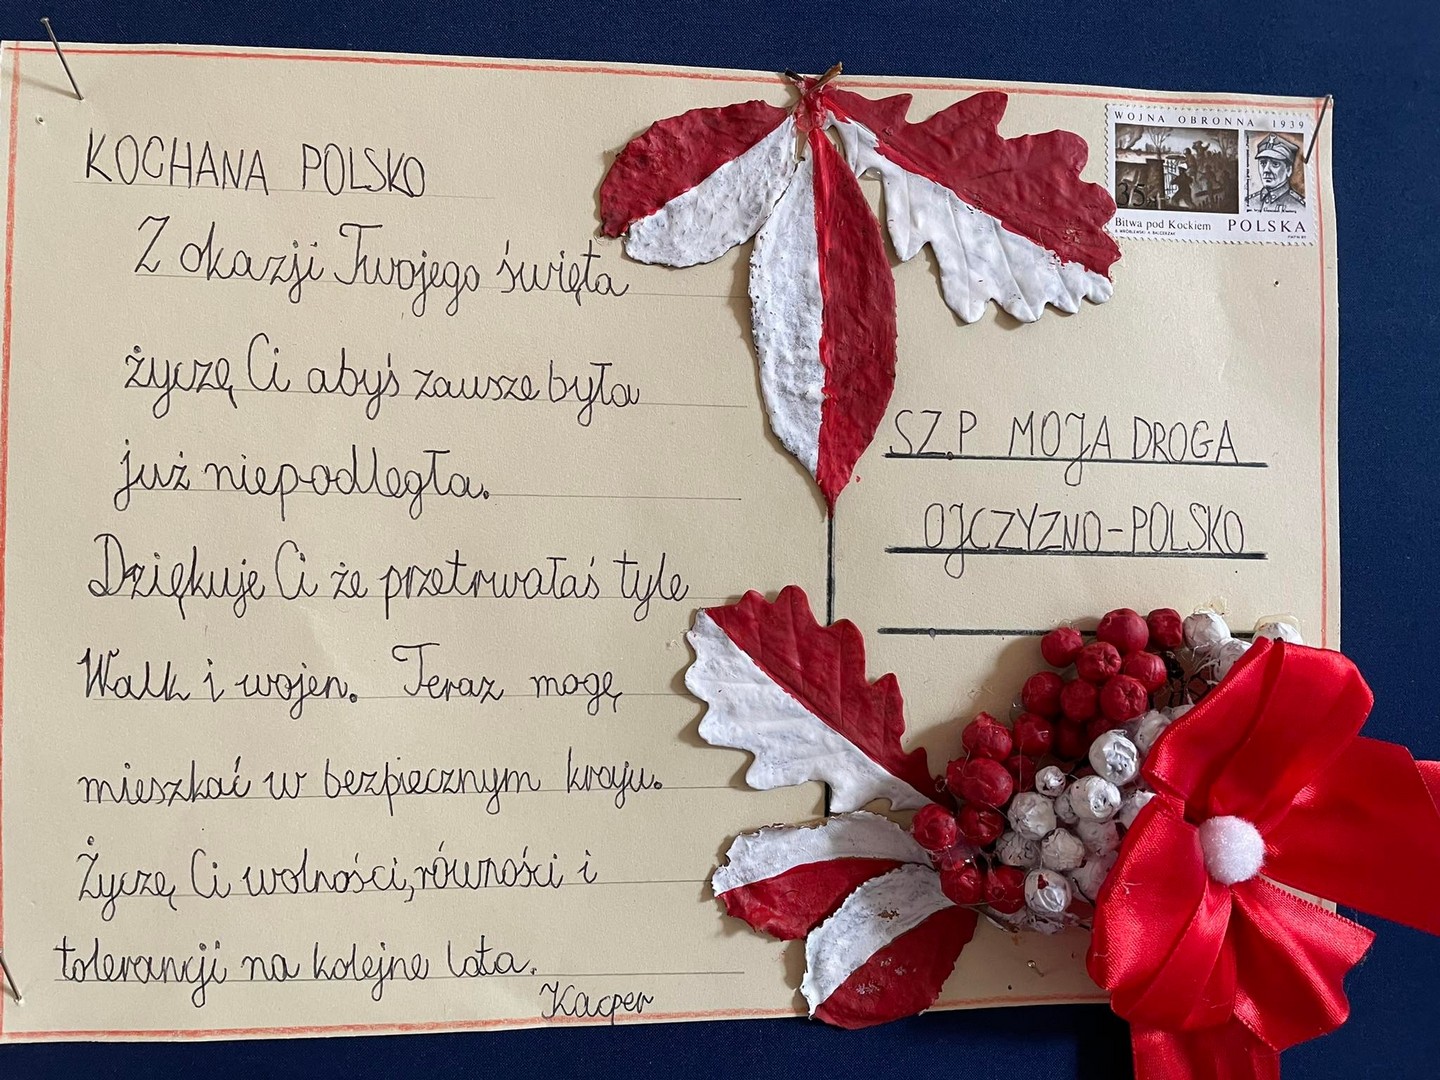 KOCHANA POLSKO
Z okazji Twojego święta
życzę Ci abyś zawsze była
już niepodległa.
Dziękuje Ci że przetrwałaś tyle
Walk i wojen. Teraz mogę
mieszkać w bezpiecznym kraju.
Życzę Ci wolności, równości i
tolerancji na kolejne lata.
Kacper
WOJNA OBRONNA 1939
35
Bitwa pod Kockiem POLSKA
SZ.P MOJA DROGA
OJCZYZNO-POLSKO